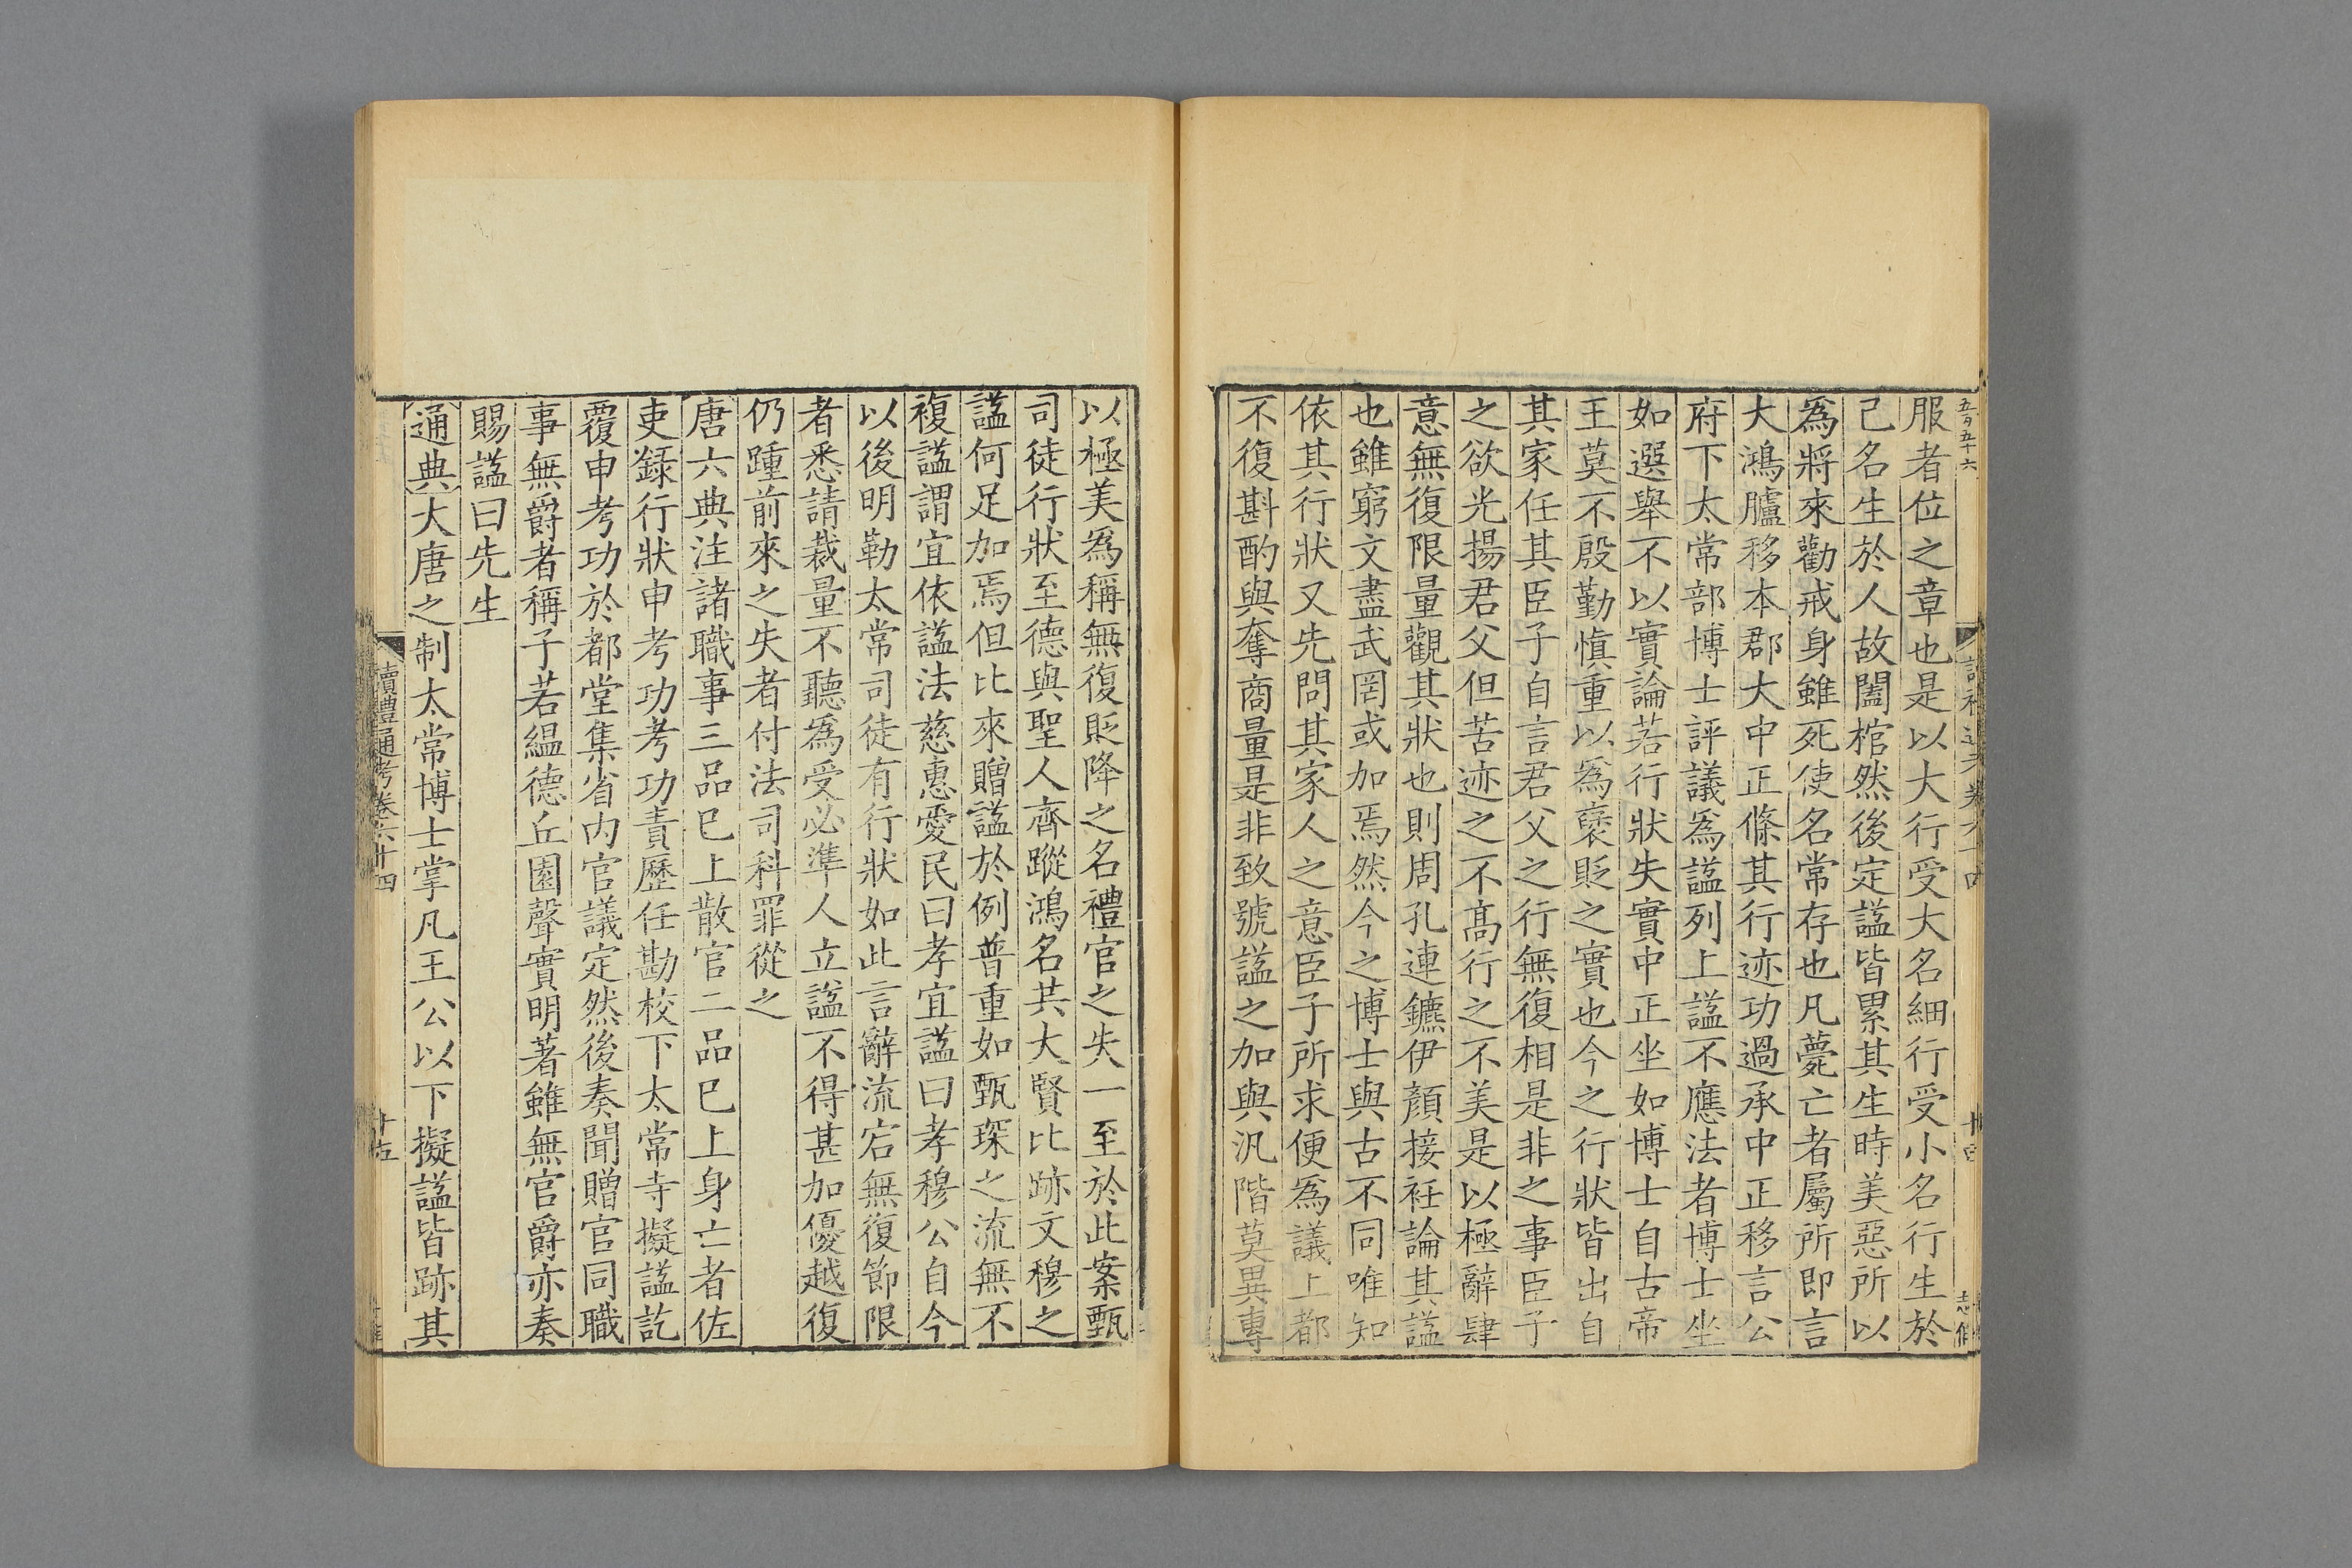 五百五十六
服者位之章也是以大行受大名細行受小名行生於
己名生於人故闔棺然後定謚皆累其生時美惡所以
爲將來勸戒身雖死使名常存也凡薨亡者屬所即言
大鴻臚移本郡大中正條其行迹功過承中正移言公
府下太常部博士評議爲謚列上謚不應法者博士坐
如選舉不以實論若行狀失實中正坐如博士自古帝
王莫不殷勤慎重以爲襃貶之實也今之行狀皆出自
其家任其臣子自言君父之行無復相是非之事臣子
之欲光揚君父但苦迹之不高行之不美是以極辭肆
意無復限量觀其狀也則周孔連鑣伊顏接衽論其謚
也雖窮文盡武罔或加焉然今之博士與古不同唯知
依其行狀又先問其家人之意臣子所求便爲議上都
不復斟酌與奪商量是非致號謚之加與汎階莫異專
以極美爲稱無復貶降之名禮官之失一至於此案甄
司徒行狀至德與聖人齊蹤鴻名共大賢比跡文穆之
謚何足加焉但比來贈謚於例普重如甄琛之流無不
複謚謂宜依謚法慈惠愛民曰孝宜謚曰孝穆公自今
以後明勒太常司徒有行狀如此言辭流宕無復節限
者悉請裁量不聽爲受必準人立謚不得甚加優越復
仍踵前來之失者付法司科罪從之
唐六典注諸職事三品巳上散官二品巳上身亡者佐
吏録行狀申考功考功責歷任勘校下太常寺擬謚訖
覆申考功於都堂集省内官議定然後奏聞贈官同職
事無爵者稱子若緼德丘園聲實明著雖無官爵亦奏
賜謚曰先生
通典大唐之制太常博士掌凡王公以下擬謚皆跡其
讀禮通考卷六十四
十五